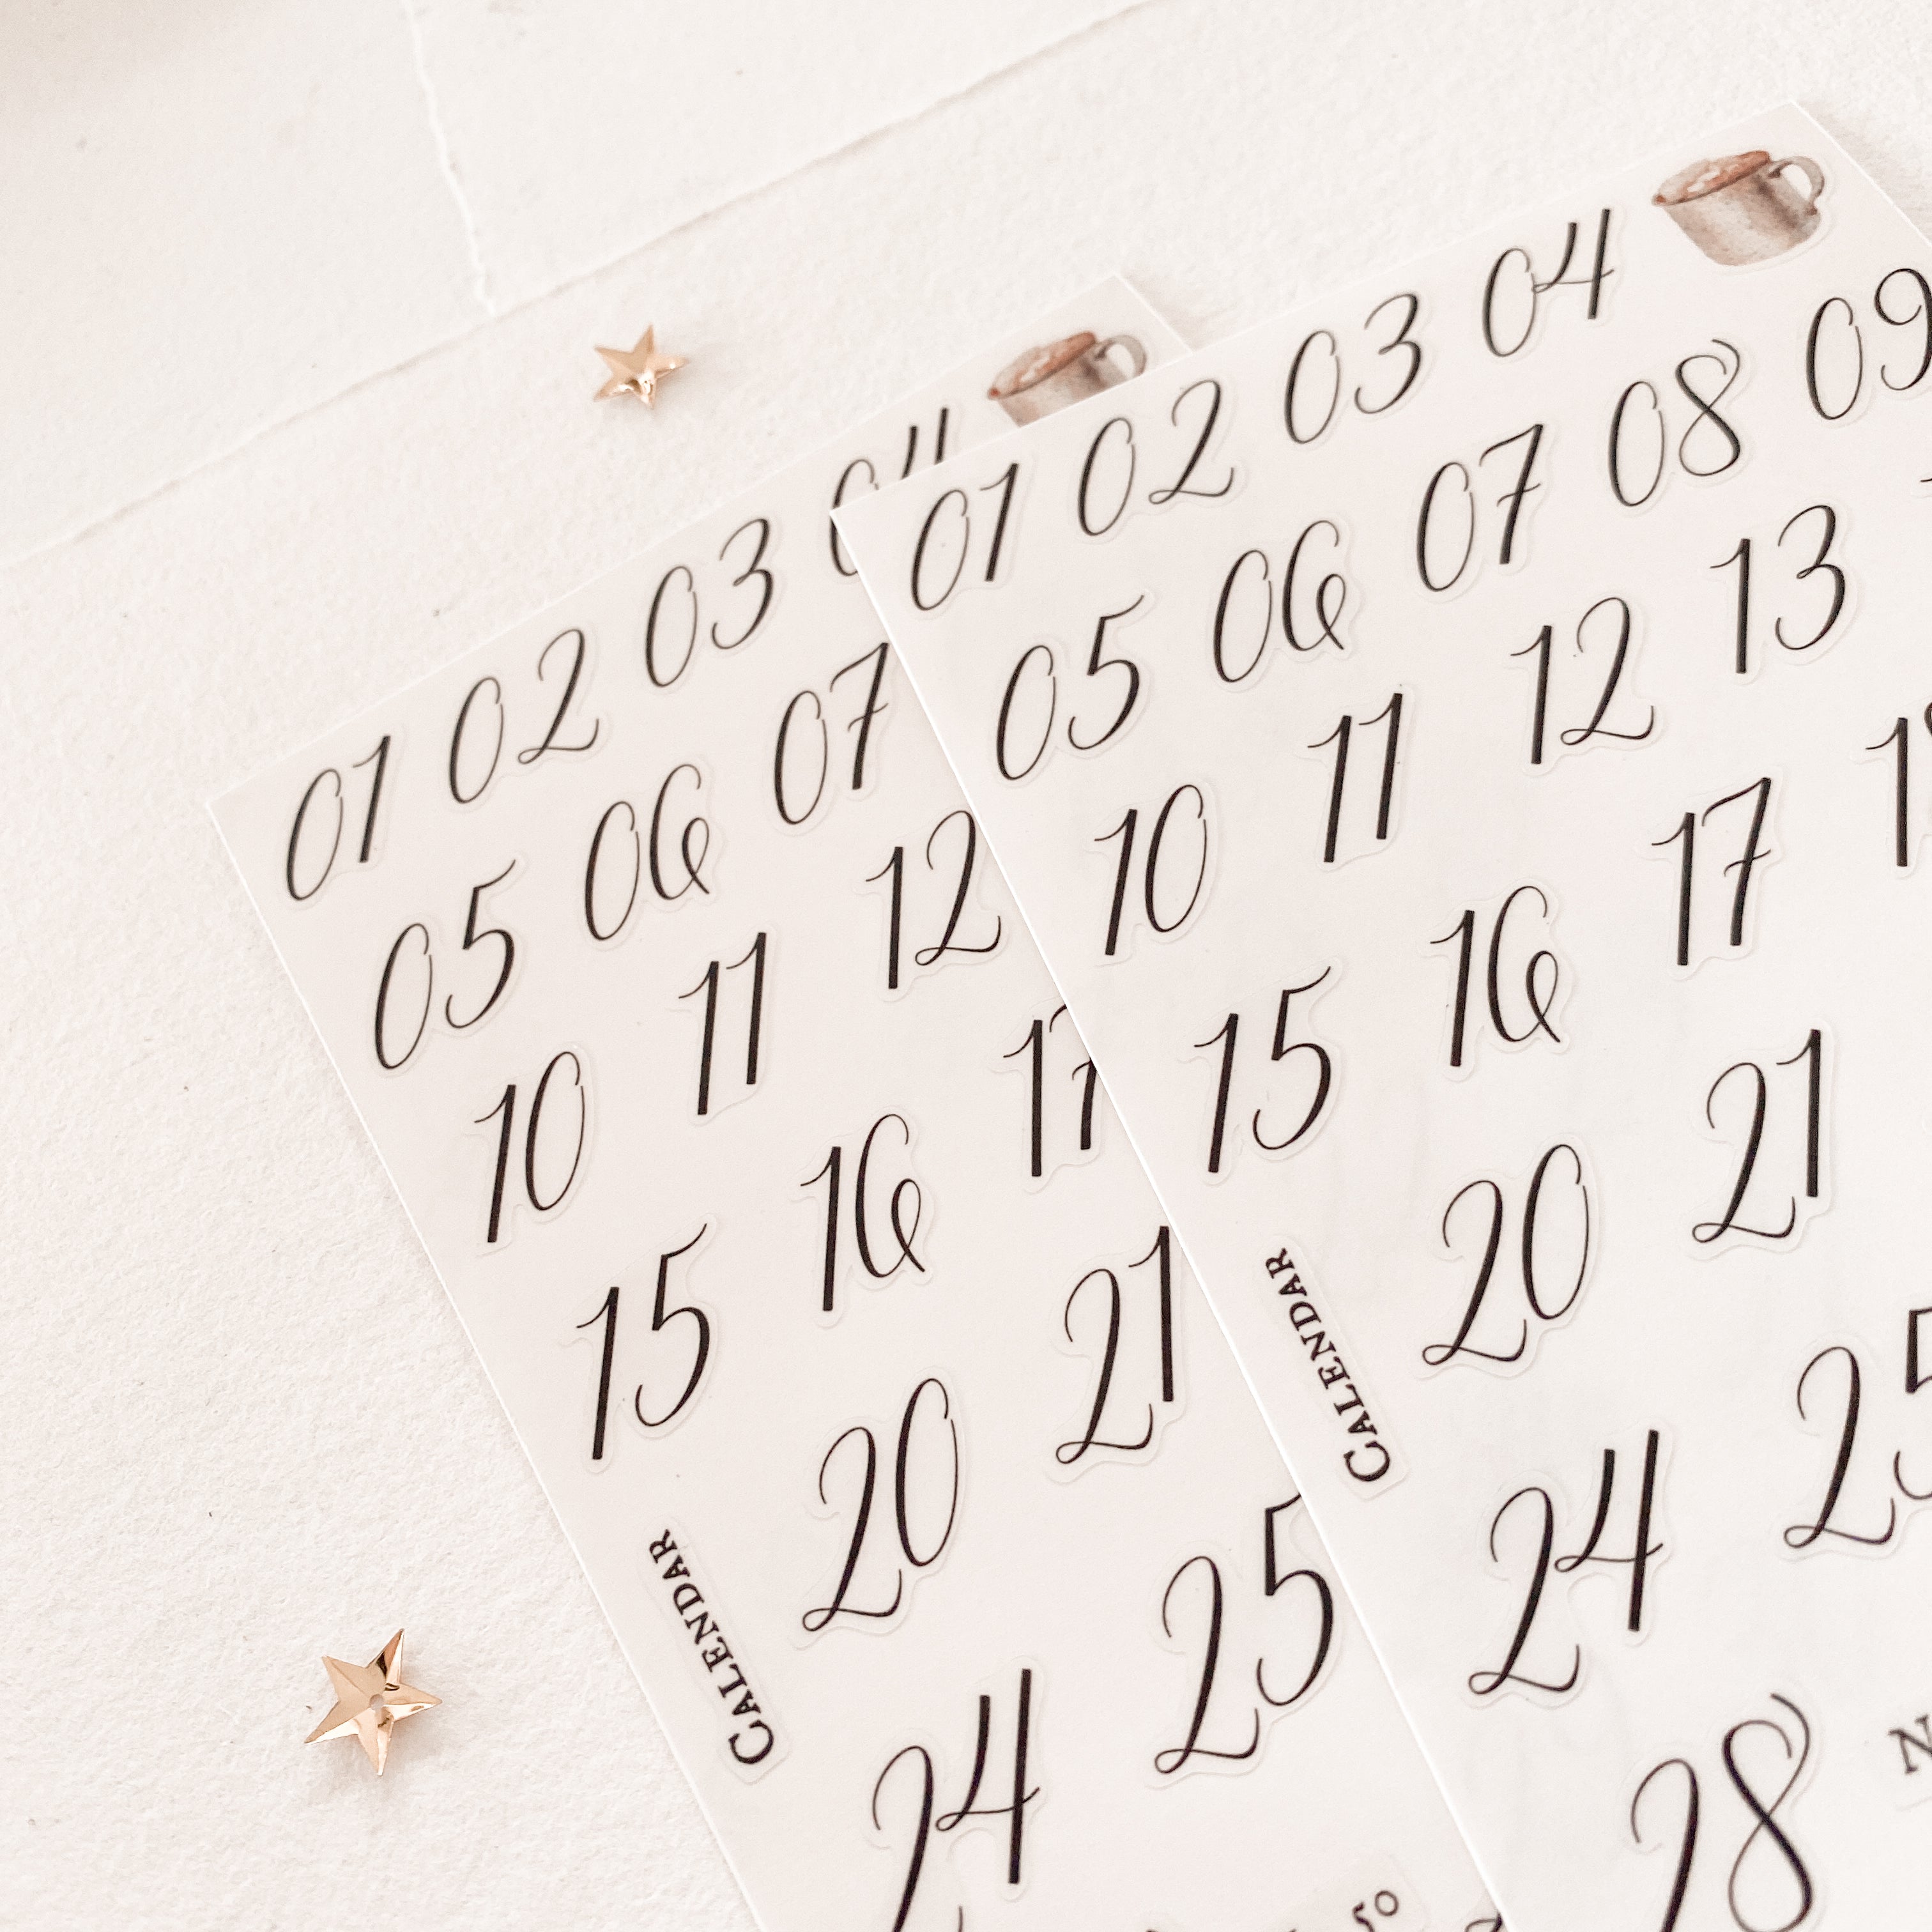 01 02 03 04
05 06 07
10 11 12
15 16
20 21
CALENDAR
24 25
01 02 03 04
05 06 07 08 09
10 11 12 13
15 16 17
20 21
CALENDAR
24 25
28